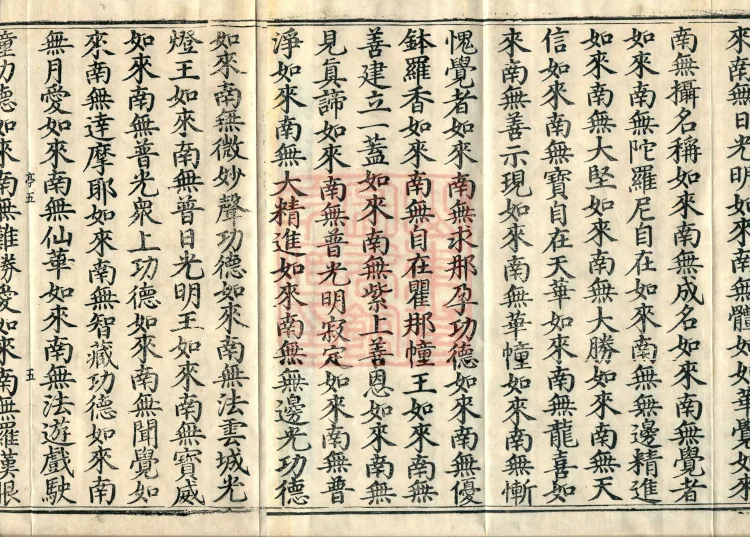 來南無日光明如來南無體如如華覺如來
南無攝名稱如來南無成名如來南無覺者
如來南無陀羅尼自在如來南無無邊精進
如來南無大堅如來南無大勝如來南無天
信如來南無寶自在天華如來南無龍喜如
來南無善示現如來南無華幢如來南無慚
愧覺者如來南無求那孕功德如來南無優
鉢羅香如來南無自在瞿那幢王如來南無
善建立一蓋如來南無紫上善恩如來南無
見真諦如來南無普光明寂定如來南無普
淨如來南無大精進如來南無無邊光功德
如來南無微妙聲功德如來南無法雲城光
燈王如來南無普日光明王如來南無寶威
如來南無普光衆上功德如來南無聞覺如
來南無達摩耶如來南無智藏功德如來南
無月愛如來南無仙華如來南無法遊戲駛
亭五 五
童功德如來南無難勝愛如來南無羅漢眼